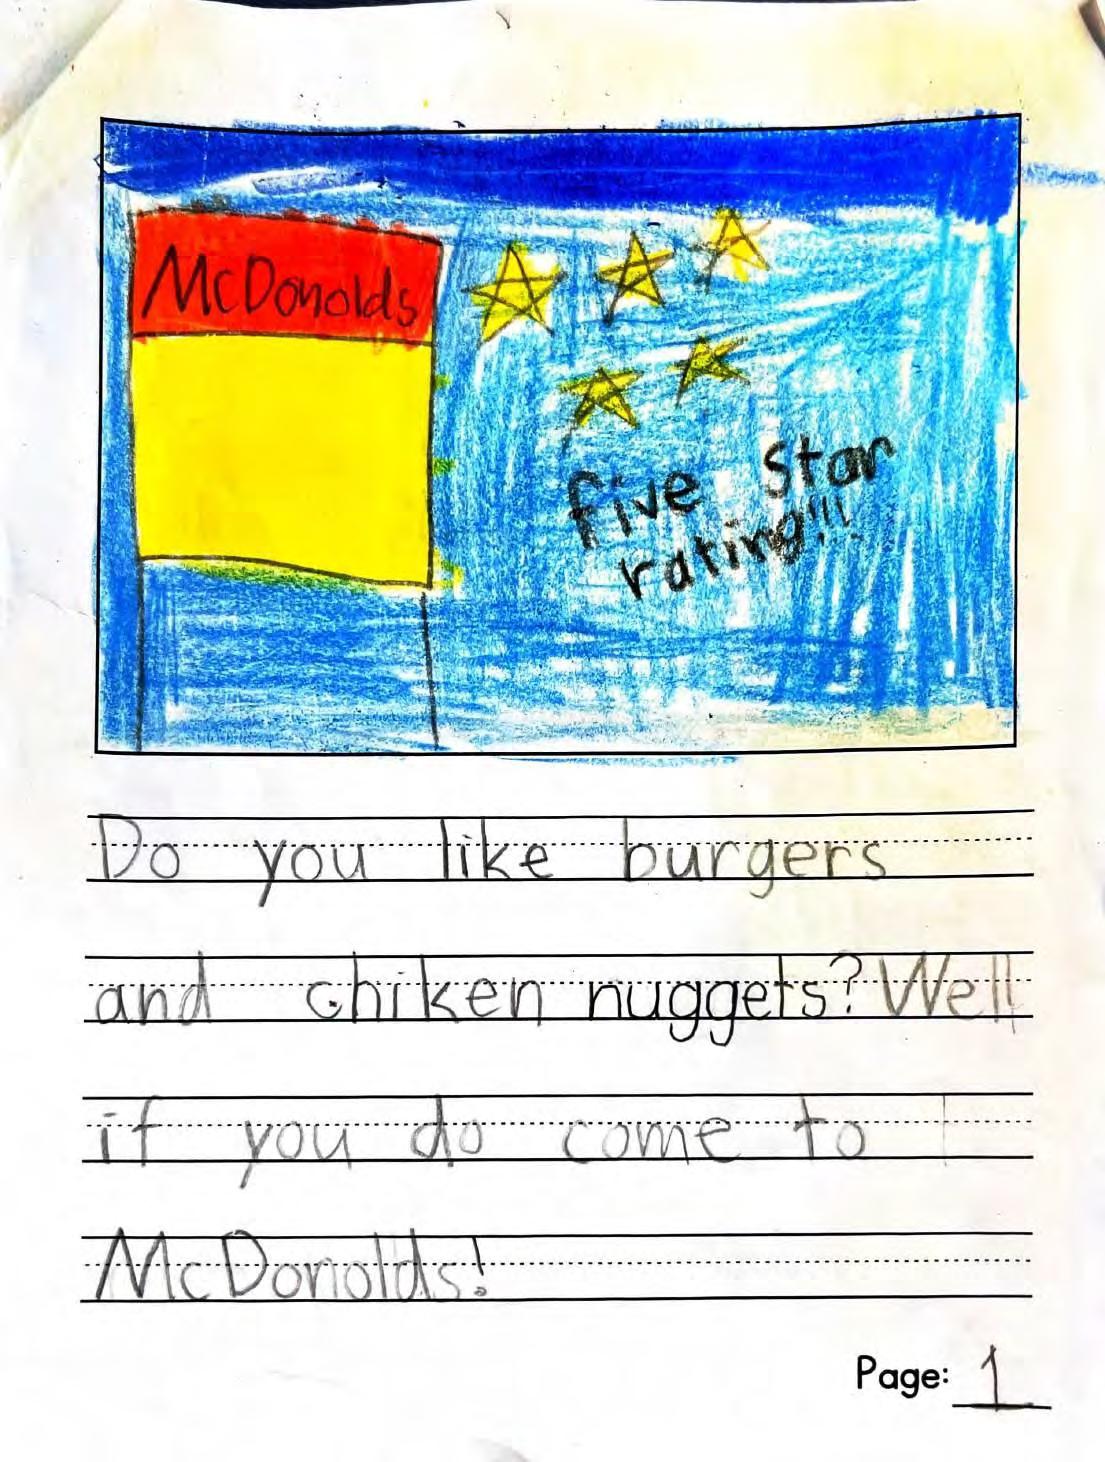 McDonolds
five Star
rating!!!
Do you like burgers
and chiken nuggets? Well
if you do come to
McDonolds!
Page: 1